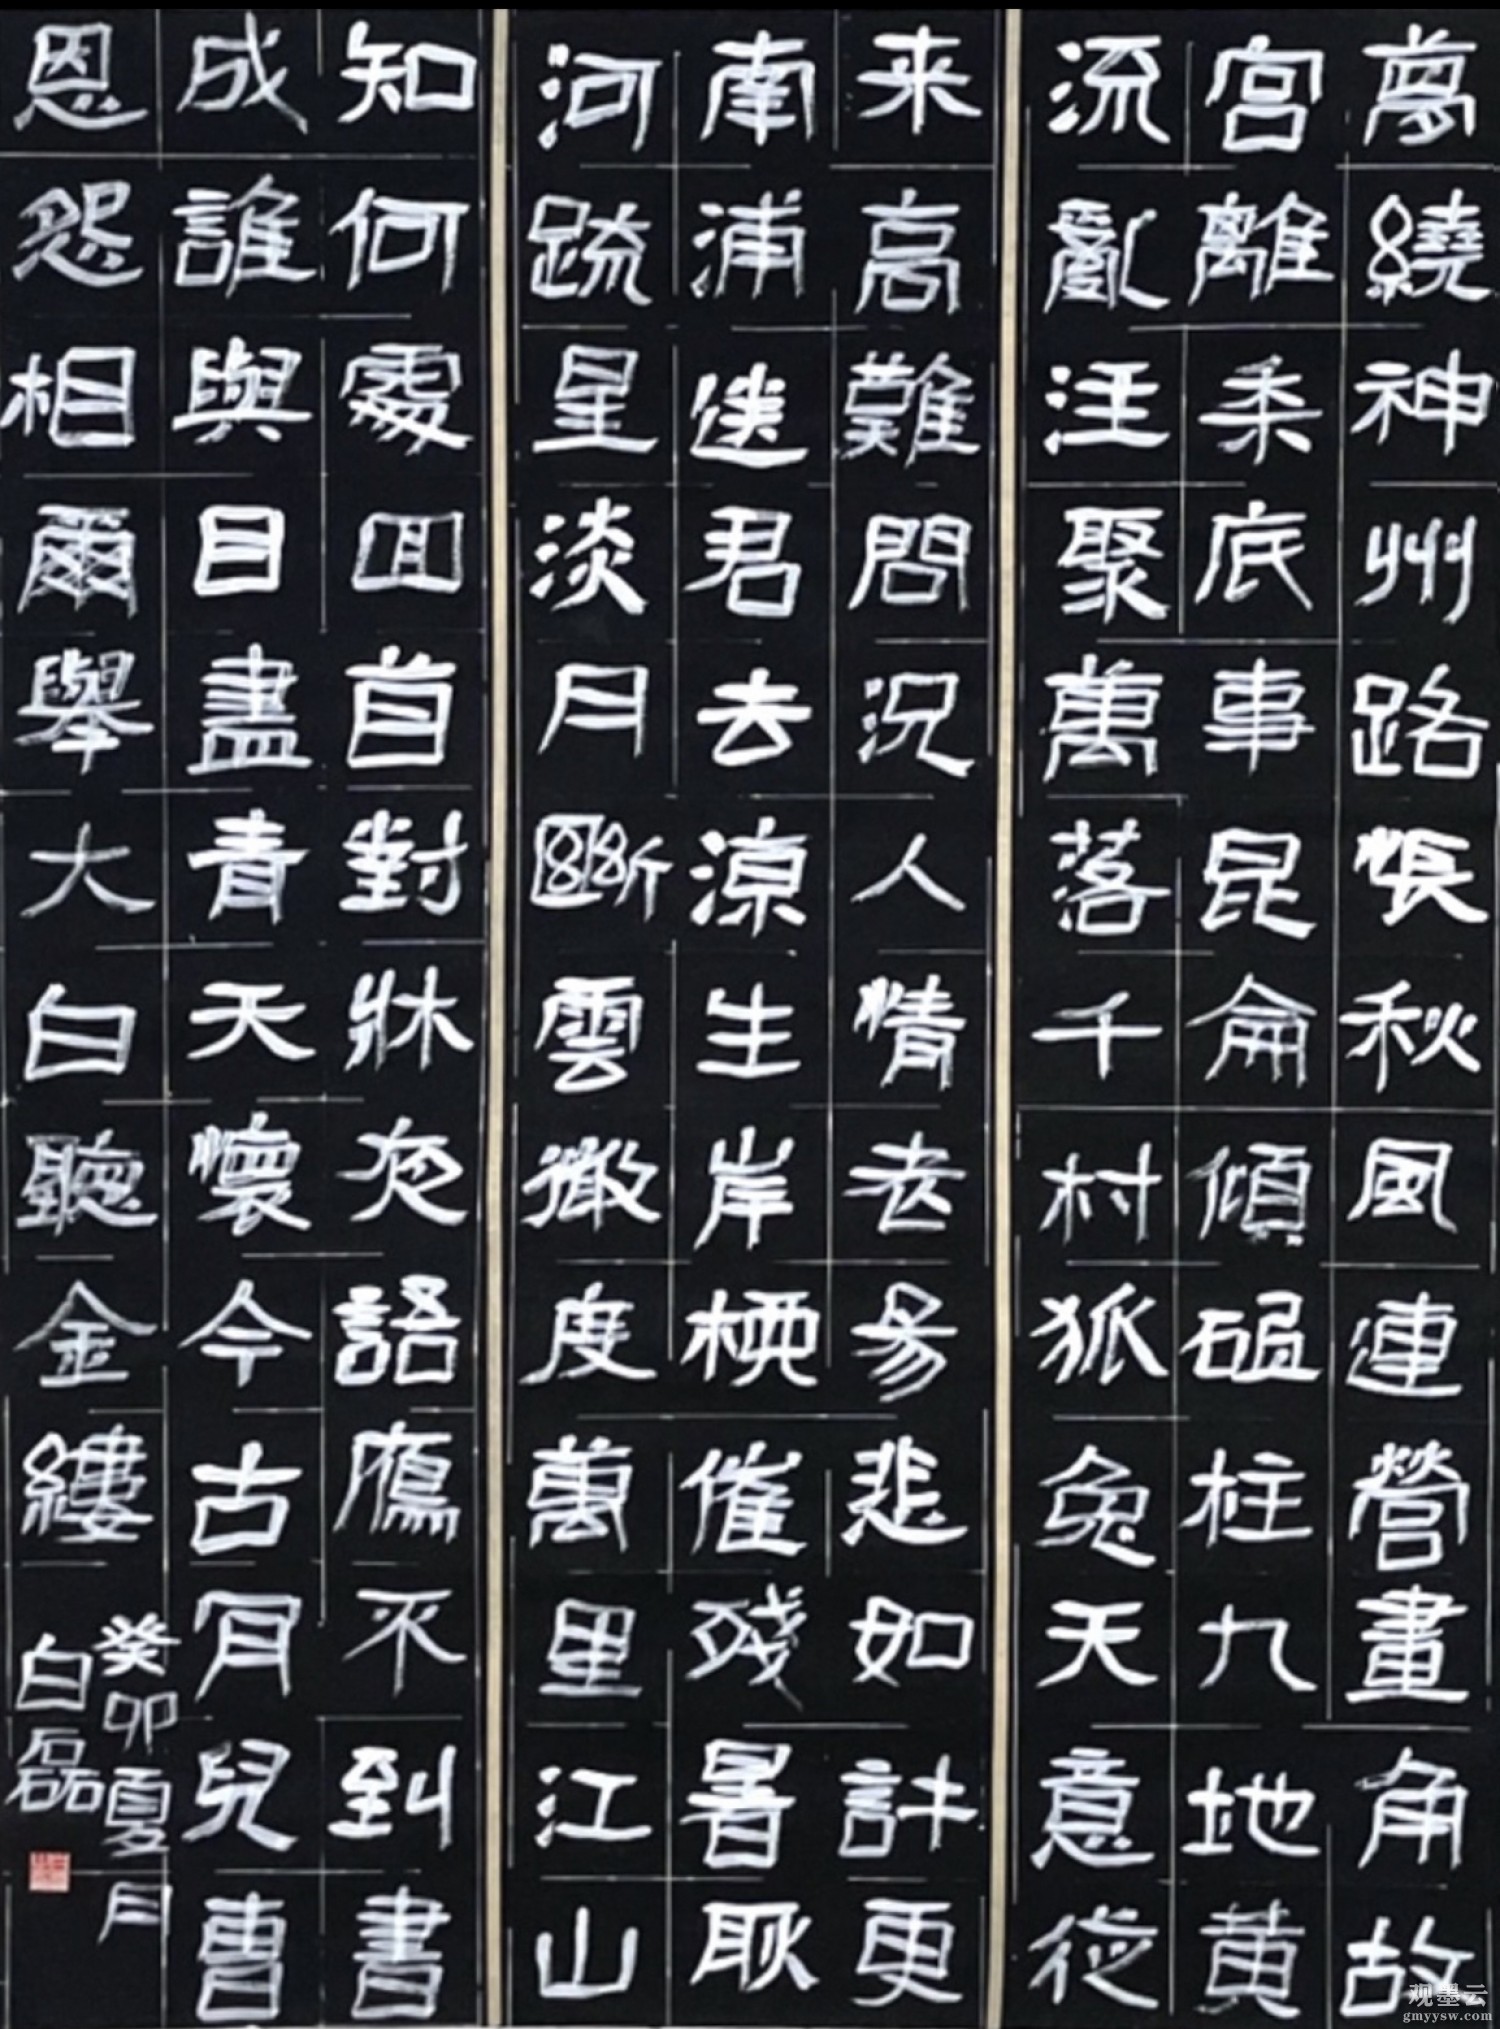 夢繞神州路悵秋風連營畫角故
宮離黍底事昆侖傾砥柱九地黃
流亂注聚萬落千村狐兔天意從
来高難問況人情老易悲如許更
南浦送君去涼生岸柳催殘暑耿
河疏星淡月斷雲微度萬里江山
知何處回首對牀夜語鴈不到書
成誰與目盡青天懷今古肯兒曹
恩怨相爾舉大白聽金縷
癸卯夏月
白磊
观墨云
gmyysw.com